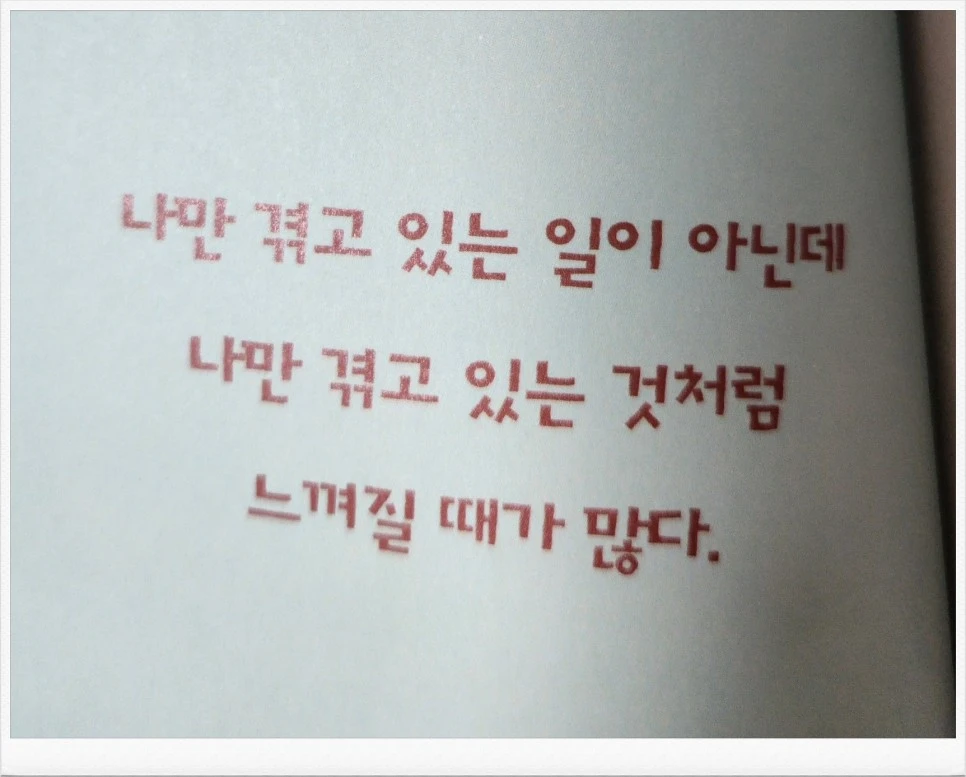 나만 겪고 있는 일이 아닌데
나만 겪고 있는 것처럼
느껴질 때가 많다.